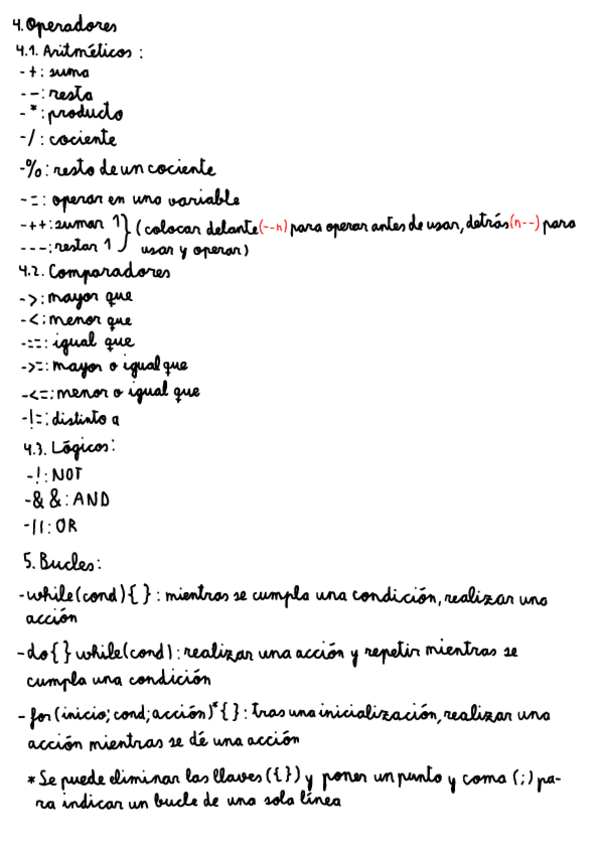 4. Operadores
4.1. Aritméticos:
-+: suma
--: resta
-*: producto
-/: cociente
-%: resto de un cociente
-=: operar en una variable
-++: sumar 1 } (colocar delante (--n) para operar antes de usar, detrás (n--) para
---: restar 1 } usar y operar)
4.2. Comparadores
->: mayor que
-<: menor que
-==: igual que
->=: mayor o igual que
-<=: menor o igual que
-!=: distinto a
4.3. Lógicos:
-!: NOT
-&&: AND
-||: OR
5. Bucles:
-while(cond){}: mientras se cumpla una condición, realizar una
acción
-do{}while(cond): realizar una acción y repetir mientras se
cumpla una condición
-for(inicio;cond;acción)*{}: tras una inicialización, realizar una
acción mientras se dé una acción
*Se puede eliminar las llaves ({}) y poner un punto y coma (;) pa-
ra indicar un bucle de una sola línea